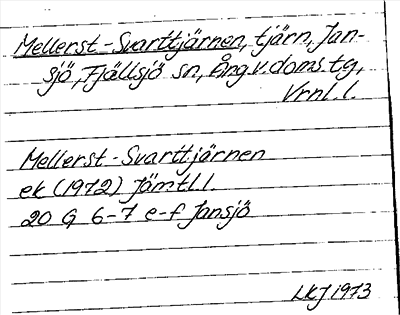 Mellerst-Svarttjärnen, tjärn, Jan-
sjö, Fjällsjö sn, Ång.v.doms.tg,
Vrnl.l.
Mellerst-Svarttjärnen
ek (1972) Jämtl.l.
20 G 6-7 e-f Jansjö
LKJ 1973